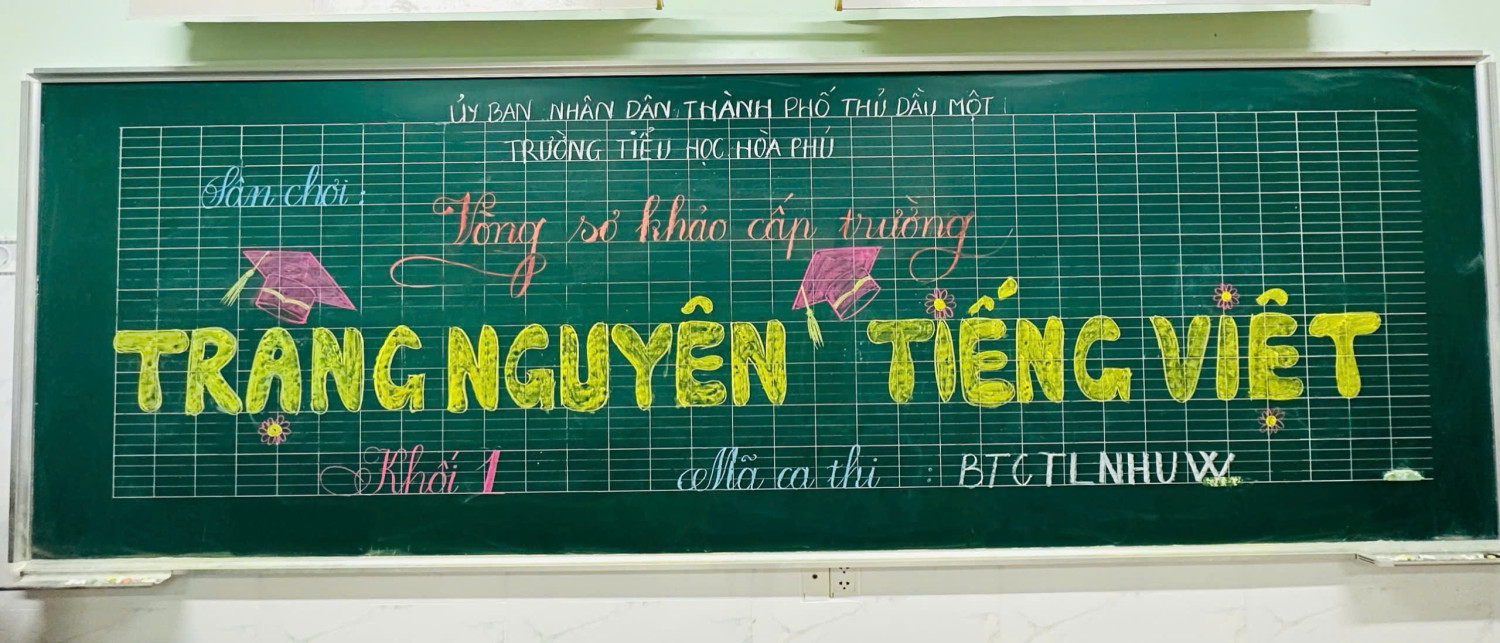 ỦY BAN NHÂN DÂN THÀNH PHỐ THỦ DẦU MỘT
TRƯỜNG TIỂU HỌC HÒA PHÚ
Sân chơi :
Vòng sơ khảo cấp trường
TRẠNG NGUYÊN TIẾNG VIỆT
Khối 1
Mã ca thi : BTCTLNHUW